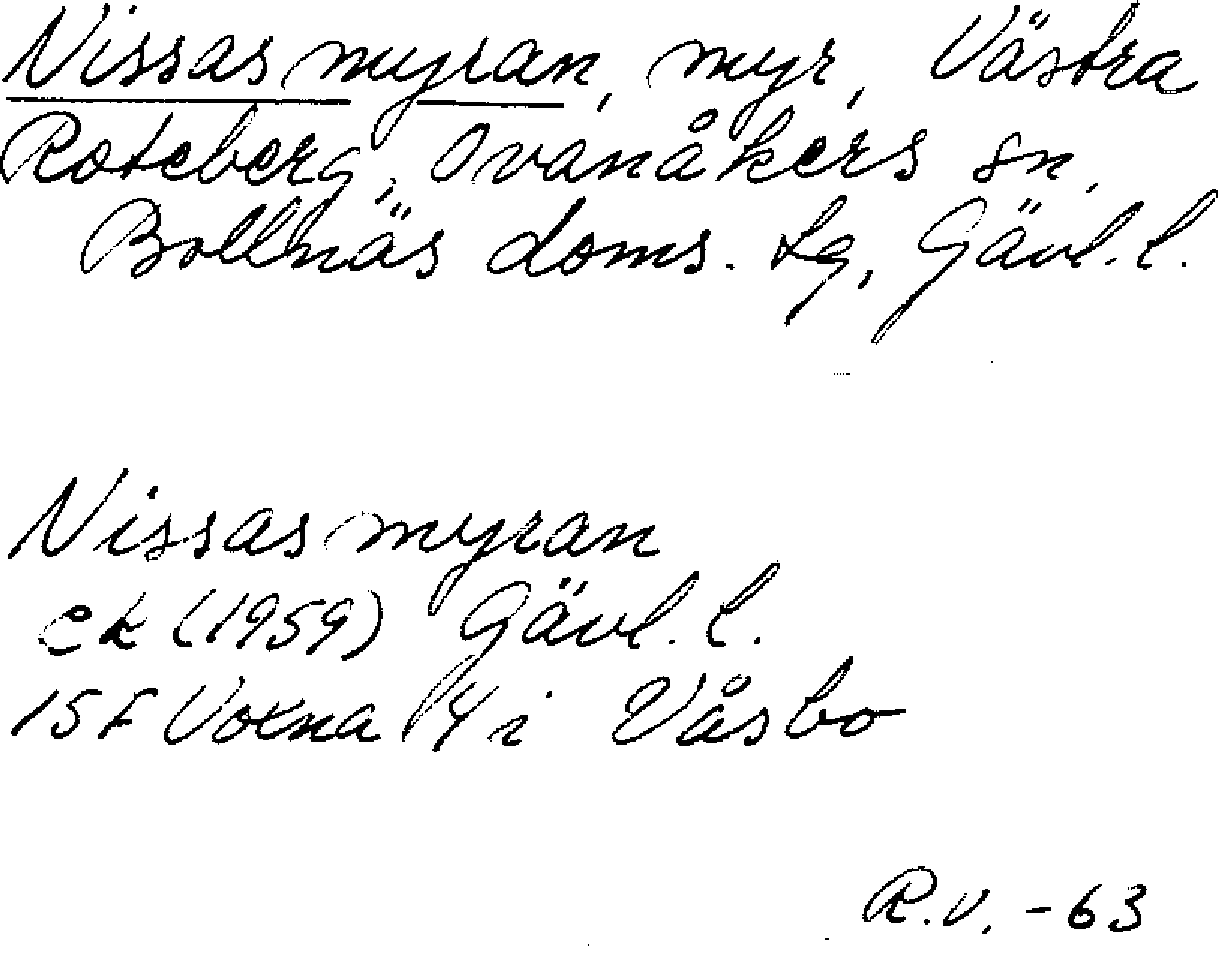 Nissasmyran, myr, Västra
Roteberg, Ovanåkers sn,
Bollnäs doms. tg, Gävl. l.
Nissasmyran
ek (1959) Gävl. l.
15F Voxna 4 i Våsbo
R.V. -63